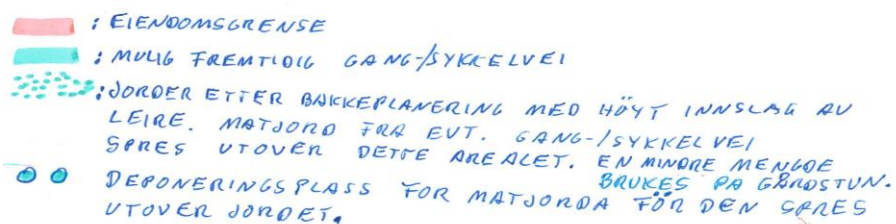 : EIENDOMSGRENSE
: MULIG FREMTIDIG GANG-/SYKKELVEI
: JORDER ETTER BAKKEPLANERING MED HÖYT INNSLAG AV
LEIRE. MATJORD FRA EVT. GANG-/SYKKELVEI
SPRES UTOVER DETTE AREALET. EN MINDRE MENGDE
BRUKES PÅ GÅRDSTUN.
DEPONERINGSPLASS FOR MATJORDA FÖR DEN SPRES
UTOVER JORDET.